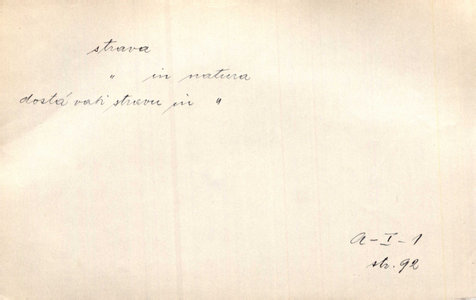 strava
" in natura
dostávati stravu in "
A-I-1
str. 92